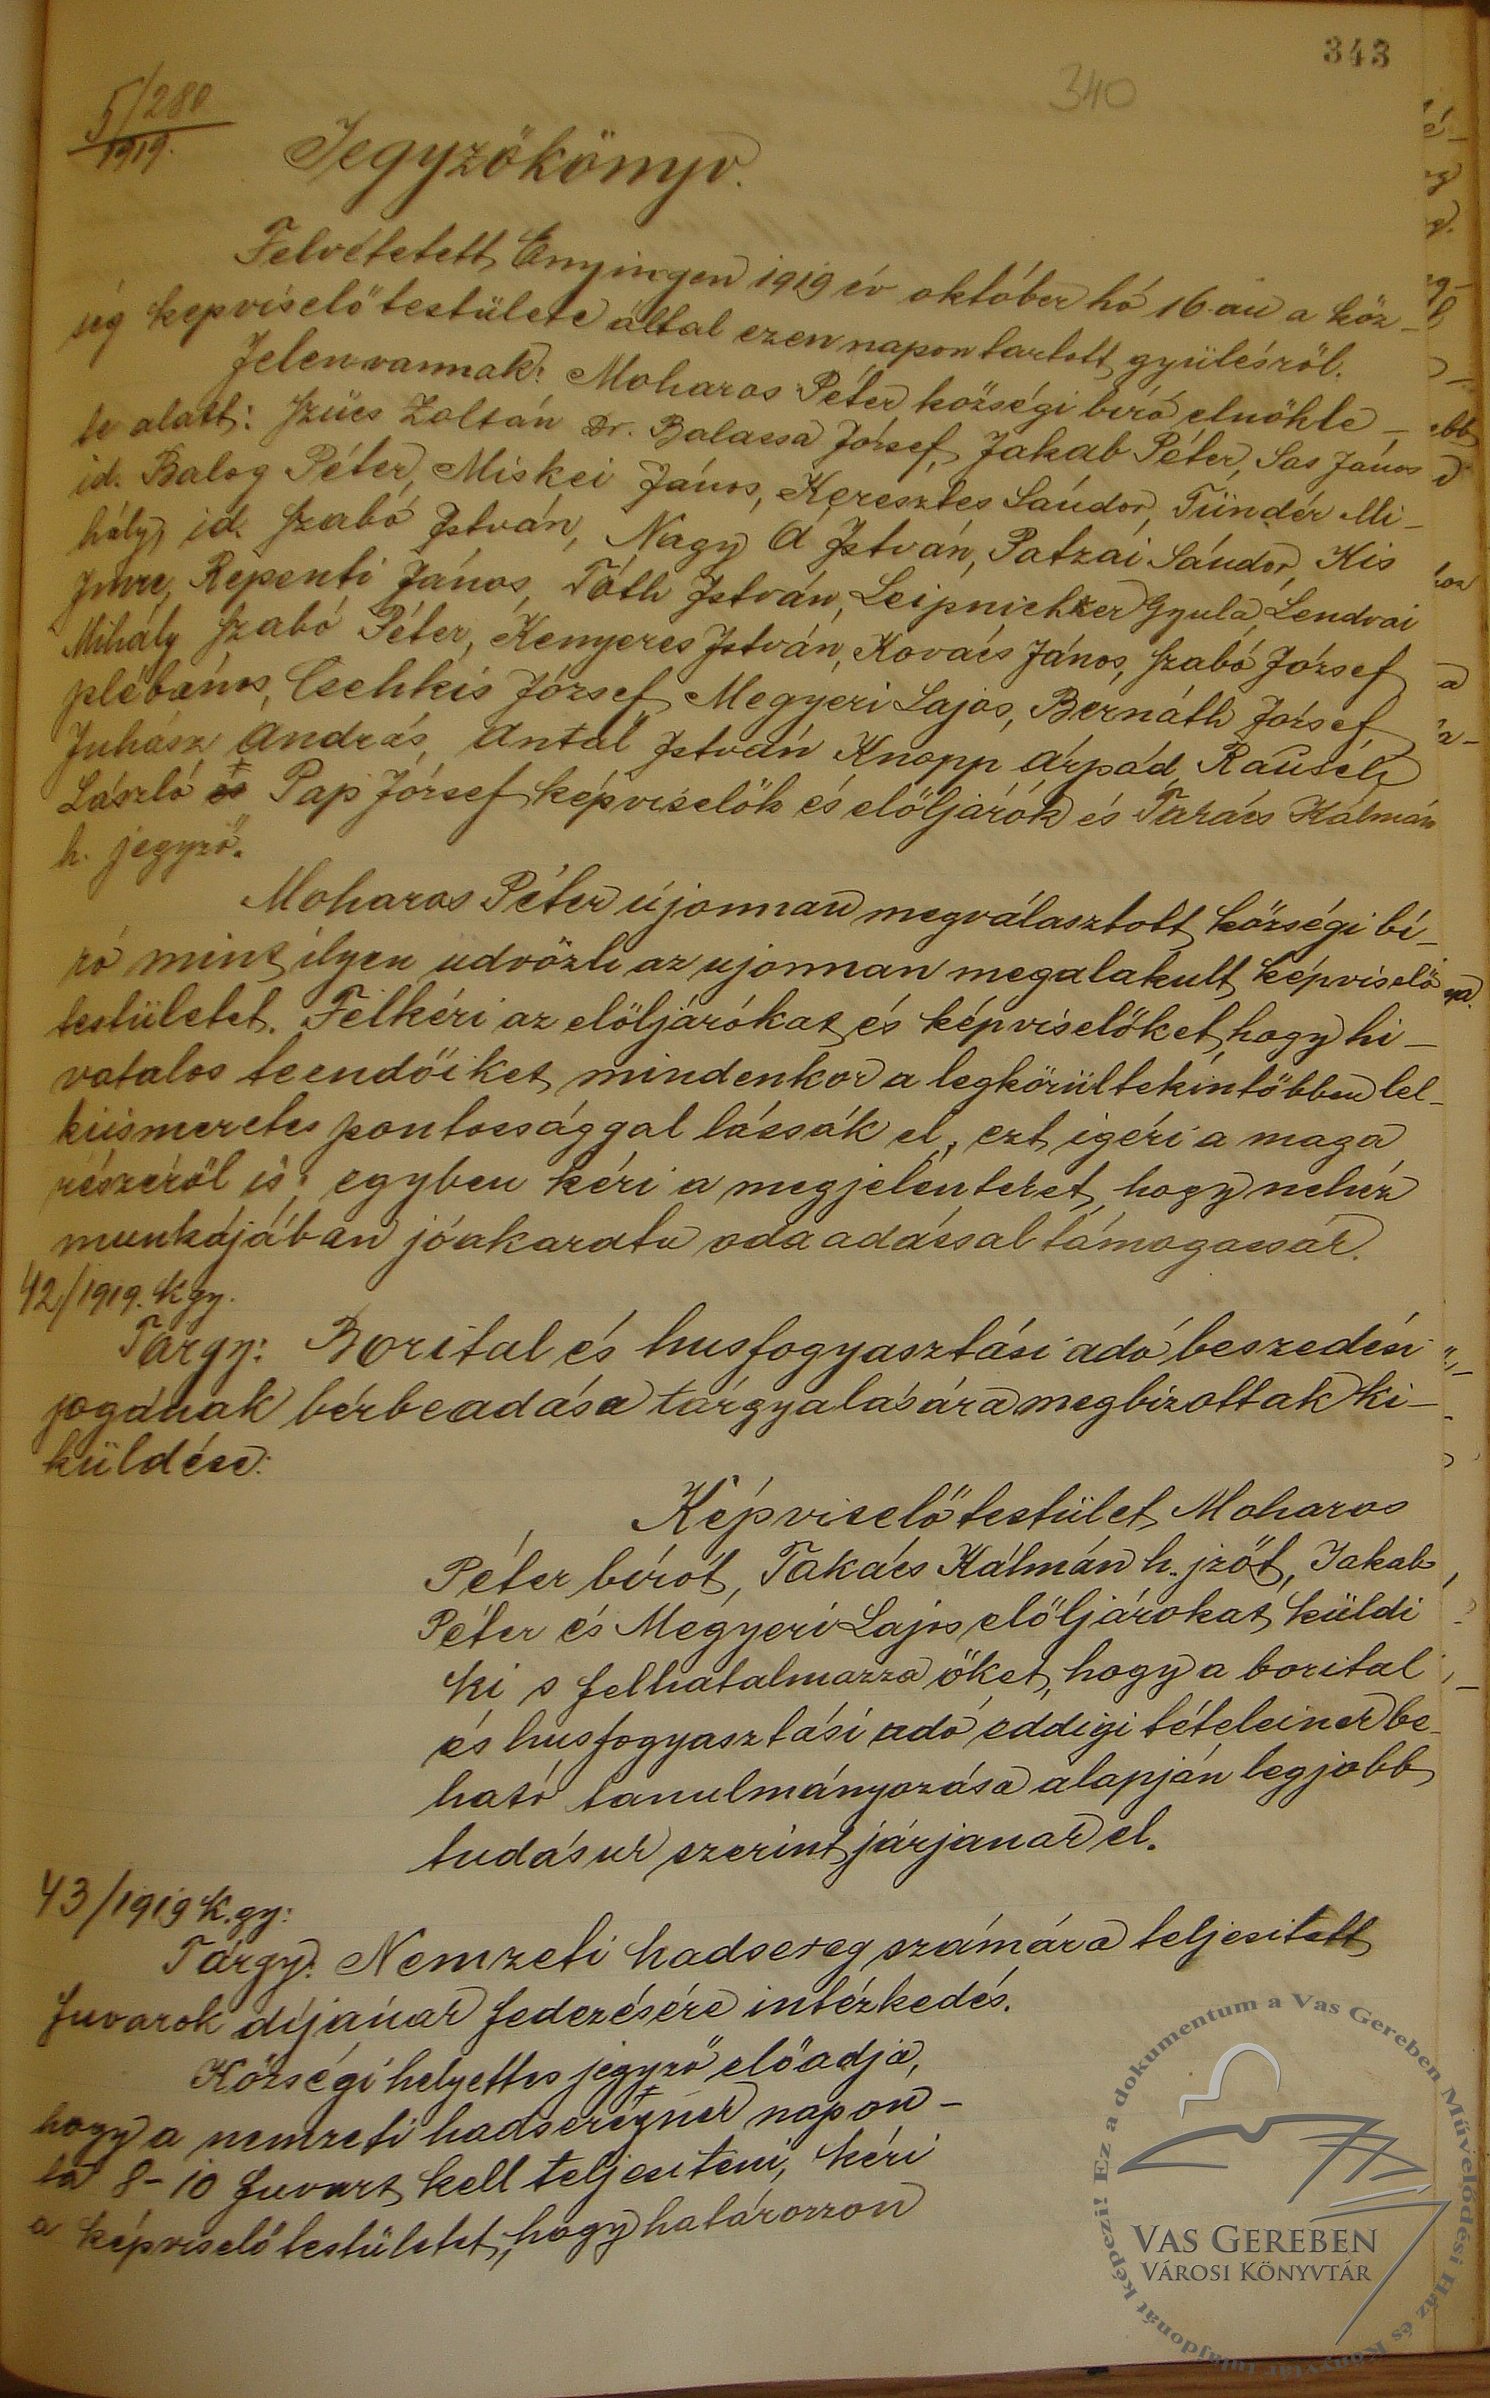 343
340
5/280
1919.
Jegyzőkönyv.
Felvétetett Enyingen 1919 év október hó 16-án a köz-
ség képviselőtestülete által ezen napon tartott gyülésről.
Jelenvannak: Moharos Péter községi biró elnökle-
te alatt: Szücs Zoltán Dr. Balassa József, Jakab Péter, Sas János
id. Balog Péter, Miskei János, Keresztes Sándor, Tündér Mi-
hály, id. Szabó István, Nagy Á István, Patzai Sándor, Kis
Imre, Repenti János, Tóth István, Leipnicker Gyula, Lendvai
Mihály Szabó Péter, Kenyeres István, Kovács János, Szabó József
plébános, Csehkis József, Megyeri Lajos, Bernáth József
Juhász András, Antal István Knopp Árpád, Rausch
László és Pap József képviselők és előljárók és Takács Kálmán
h. jegyző.
Moharos Péter újonnan megválasztott községi bí-
ró mint ilyen üdvözli az ujonnan megalakult képviselő
testületet. Felkéri az előljárókat és képviselőket, hogy hi-
vatalos teendőiket mindenkor a legkörültekintőbben lel-
kiismeretes pontossággal lássák el, ezt igéri a maga
részéről is; egyben kéri a megjelenteket, hogy nehéz
munkájában jóakaratu odaadással támogassák.
42/1919. kgy.
Tárgy: Borital és husfogyasztási adó beszedési
jogának bérbeadása tárgyalására megbizottak ki-
küldése:
Képviselőtestület Moharos
Péter bírót, Takács Kálmán h. jzőt, Jakab
Péter és Megyeri Lajos előljárokat küldi
ki s felhatalmazza őket, hogy a borital
és husfogyasztási adó eddigi tételeinek be-
ható tanulmányozása alapján legjobb
tudásuk szerint járjanak el.
43/1919 k.gy:
Tárgy: Nemzeti hadsereg számára teljesitett
fuvarok díjának fedezésére intézkedés.
Községi helyettes jegyző előadja,
hogy a nemzeti hadseregnek napon-
ta 8-10 fuvart kell teljesiteni, kéri
a képviselőtestületet, hogy határozzon
Ez a dokumentum a Vas Gereben Művelődési Ház és Könyvtár tulajdonát képezi!
VAS GEREBEN
VÁROSI KÖNYVTÁR